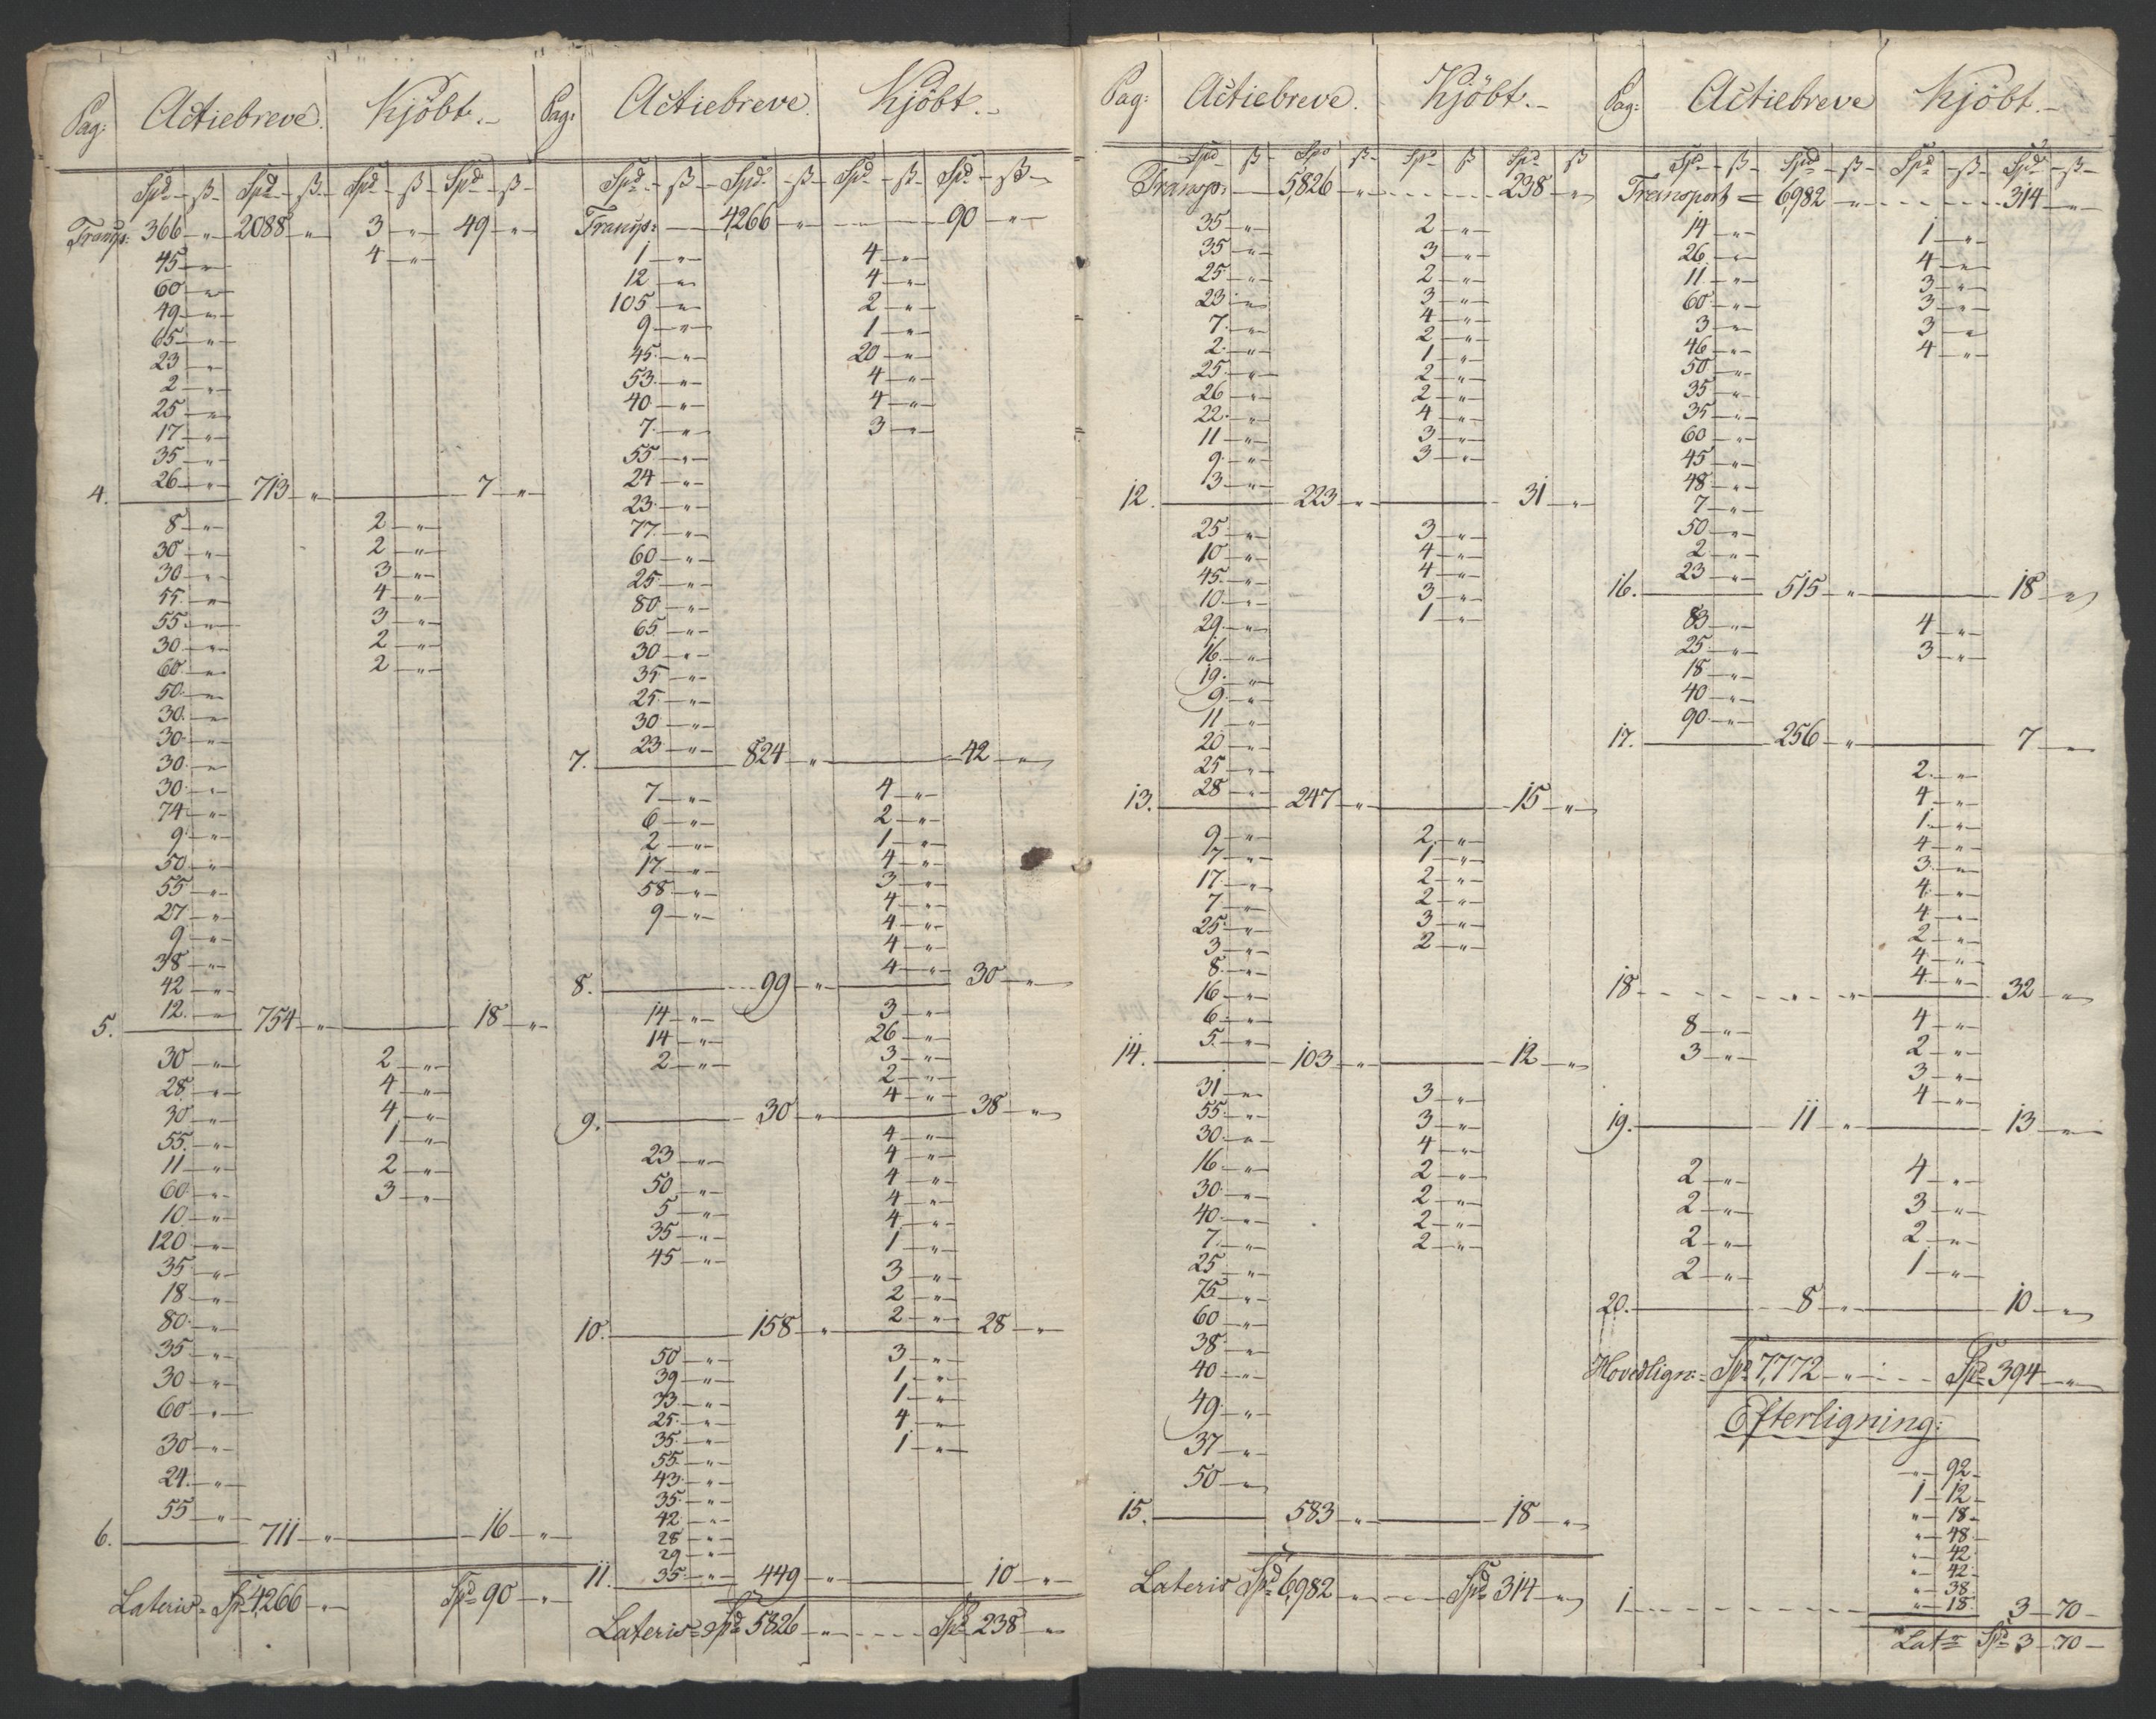 Pag: Actiebreve. Kjöbt.-
Spd - ß - Spd - ß - Spd - ß - Spd - ß -
Transp: 366 - " - 2088 - " 3 - " - 49 - "
45 - " 4 - "
60 - "
49 - "
65 - "
23 - "
2 - "
25 - "
17 - "
35 - "
26 - "
4. 713 - " 7 - "
8 - " 2 - "
30 - " 2 - "
30 - " 3 - "
55 - " 4 - "
55 - " 3 - "
30 - " 2 - "
60 - " 2 - "
50 - "
30 - "
30 - "
30 - "
30 - "
74 - "
9 - "
50 - "
55 - "
27 - "
9 - "
38 - "
42 - "
12 - "
5. 754 - " 18 - "
30 - " 2 - "
28 - " 4 - "
30 - " 4 - "
55 - " 1 - "
11 - " 2 - "
60 - " 3 - "
10 - "
120 - "
35 - "
18 - "
80 - "
35 - "
30 - "
60 - "
30 - "
24 - "
55 - "
6. 711 - " 16 - "
Lateris = Spd 4,266 - " Spd 90 - "
Pag: Actiebreve. Kjöbt.-
Spd - ß - Spd - ß - Spd - ß - Spd - ß -
Transp: 4,266 - " 90 - "
1 - " 4 - "
12 - " 4 - "
105 - " 2 - "
9 - " 1 - "
45 - " 20 - "
53 - " 4 - "
40 - " 4 - "
7 - " 3 - "
55 - "
24 - "
23 - "
77 - "
60 - "
25 - "
80 - "
65 - "
30 - "
35 - "
25 - "
30 - "
23 - "
7. 824 - " 42 - "
7 - " 4 - "
6 - " 2 - "
2 - " 1 - "
17 - " 4 - "
58 - " 3 - "
9 - " 4 - "
4 - "
4 - "
4 - "
8. 99 - " 30 - "
14 - " 3 - "
14 - " 26 - "
2 - " 3 - "
2 - "
4 - "
9. 30 - " 38 - "
4 - "
23 - " 4 - "
50 - " 4 - "
5 - " 4 - "
35 - " 4 - "
45 - " 1 - "
3 - "
2 - "
2 - "
10. 158 - " 28 - "
50 - " 3 - "
39 - " 1 - "
33 - " 1 - "
25 - " 4 - "
35 - " 1 - "
55 - "
43 - "
35 - "
42 - "
28 - "
29 - "
35 - "
11. 449 - " 10 - "
Lateris = Spd 5826 - " Spd 238 - "
Pag: Actiebreve. Kjöbt.-
Spd ß - Spd ß - Spd ß Spd ß
Transp: 5,826 - " 238 - "
35 - " 2 - "
35 - " 3 - "
25 - " 2 - "
23 - " 3 - "
7 - " 4 - "
2 - " 2 - "
25 - " 1 - "
26 - " 2 - "
22 - " 2 - "
11 - " 4 - "
9 - " 3 - "
3 - " 3 - "
12. 223 - " 31 - "
25 - " 3 - "
10 - " 4 - "
45 - " 4 - "
10 - " 3 - "
29 - " 1 - "
16 - "
19 - "
9 - "
11 - "
20 - "
25 - "
28 - "
13. 247 - " 15 - "
9 - " 2 - "
7 - " 1 - "
17 - " 2 - "
7 - " 2 - "
25 - " 3 - "
3 - " 2 - "
8 - "
16 - "
6 - "
5 - "
14. 103 - " 12 - "
31 - " 3 - "
55 - " 3 - "
30 - " 4 - "
16 - " 2 - "
30 - " 2 - "
40 - " 2 - "
7 - " 2 - "
25 - "
75 - "
60 - "
38 - "
40 - "
49 - "
37 - "
50 - "
15. 583 - " 18 - "
Lateris Spd 6,982 - " Spd 314 - "
Pag: Actiebreve Kjöbt.-
Spd - ß - Spd - ß - Spd - ß - Spd - ß -
Transport = 6,982 - " 314 - "
14 - " 1 - "
26 - " 4 - "
11 - " 3 - "
60 - " 3 - "
3 - " 3 - "
46 - " 4 - "
50 - "
35 - "
35 - "
60 - "
45 - "
48 - "
7 - "
50 - "
2 - "
23 - "
16. 515 - " 18 - "
83 - " 4 - "
25 - " 3 - "
18 - "
40 - "
90 - "
17. 256 - " 7 - "
2 - "
4 - "
1 - "
4 - "
3 - "
4 - "
4 - "
2 - "
4 - "
4 - "
18 - " - " 32 - "
8 - " 4 - "
3 - " 2 - "
3 - "
4 - "
19. 11 - " 13 - "
2 - " 4 - "
2 - " 3 - "
2 - " 2 - "
2 - " 1 - "
20. 8 - " 10 - "
Hovedlign: = Spd 7,772 - " Spd 394 - "
Efterligning:
" - 92 -
1 - 12 -
" - 18 -
" - 48 -
" - 42 -
" - 42 -
" - 38 -
" - 18 -
1 3 - 70 -
Lats Spd 3 - 70 -